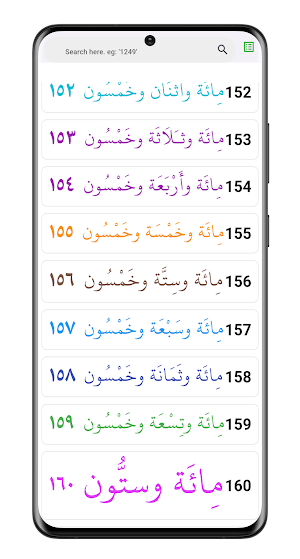 Search here. eg: '1249'
152 مِائَة واثنَان وخَمْسُون ١٥٢
153 مِائَة وثَلَاثَة وخَمْسُون ١٥٣
154 مِائَة وأَرْبَعَة وخَمْسُون ١٥٤
155 مِائَة وخَمْسَة وخَمْسُون ١٥٥
156 مِائَة وسِتَّة وخَمْسُون ١٥٦
157 مِائَة وسَبْعَة وخَمْسُون ١٥٧
158 مِائَة وثَمَانَة وخَمْسُون ١٥٨
159 مِائَة وتِسْعَة وخَمْسُون ١٥٩
160 مِائَة وستُّون ١٦٠